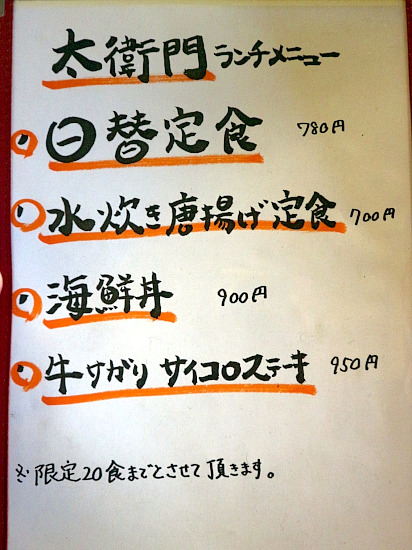 太衛門ランチメニュー
日替定食 780円
水炊き唐揚げ定食 700円
海鮮丼 900円
牛サガリ サイコロステーキ 950円
※限定20食までとさせて頂きます。